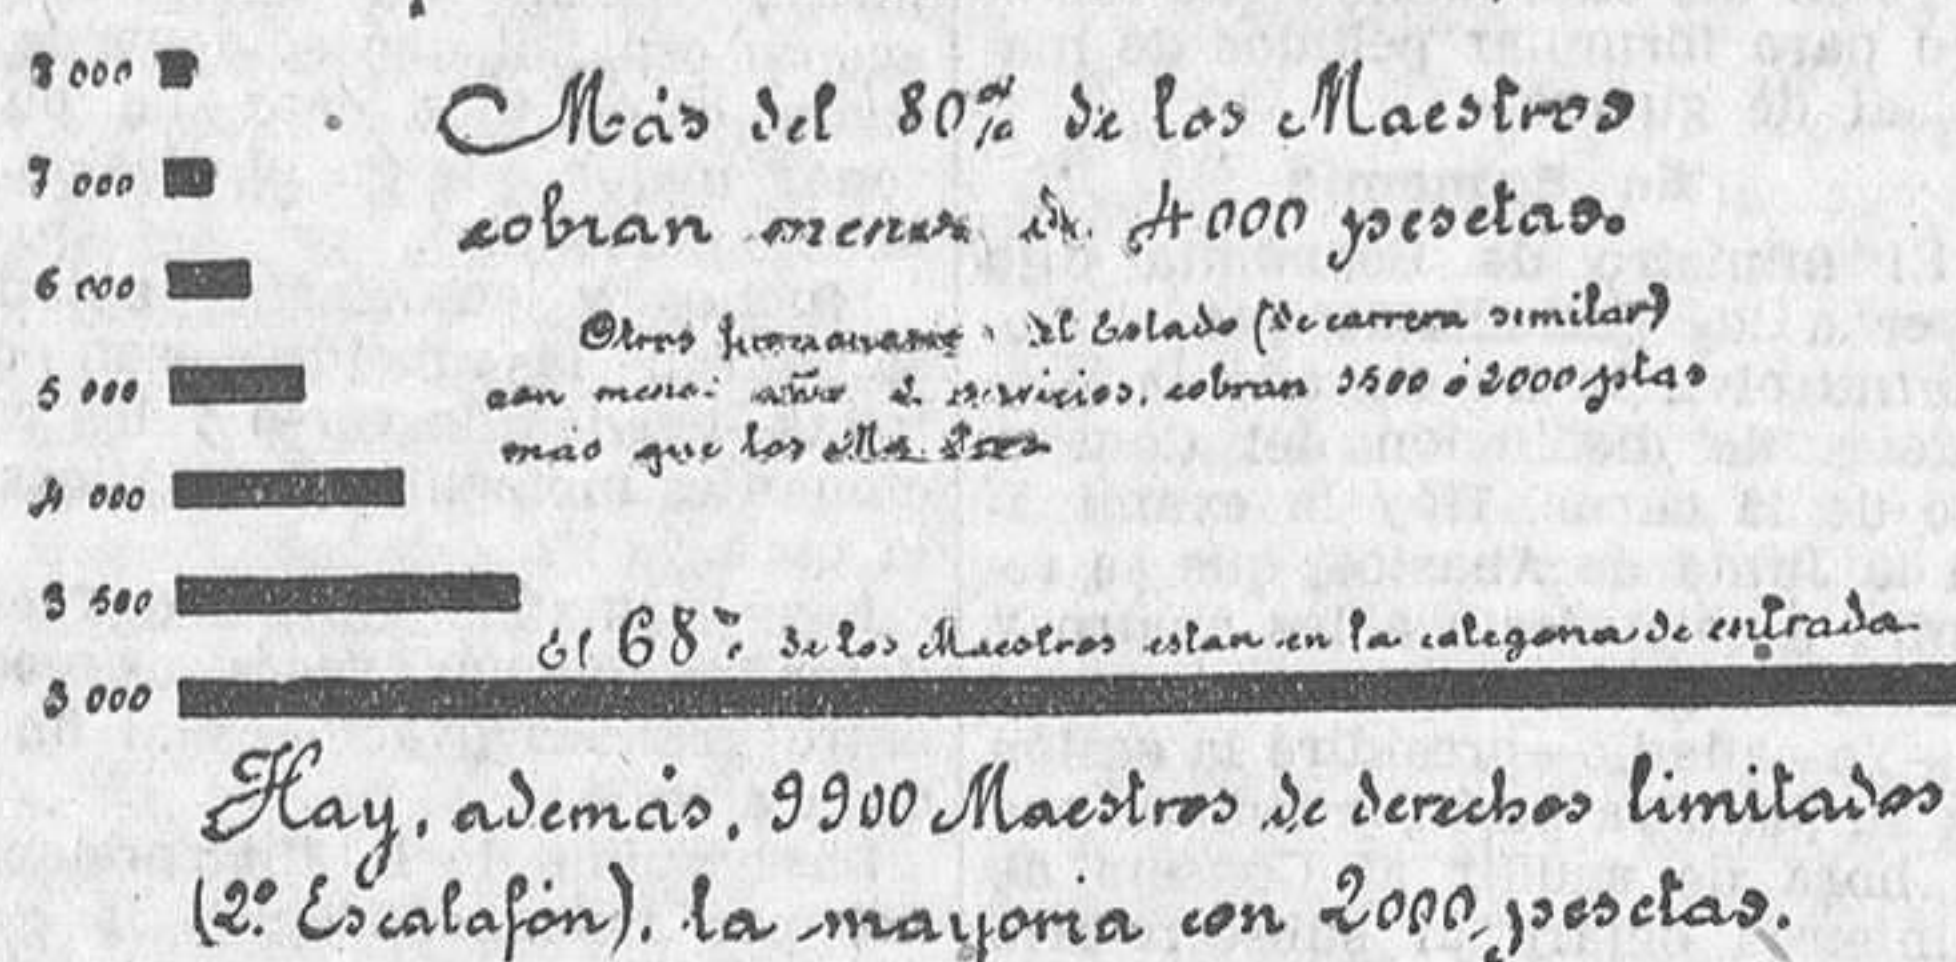 8 000
Más del 80% de los Maestros
7 000
cobran menos de 4000 pesetas.
6 000
Otros del Estado (de carrera similar)
5 000
con menos años de servicios, cobran 1500 ó 2000 ptas
más que los Maestros
4 000
3 500
El 68% de los Maestros estan en la categoria de entrada
3 000
Hay, además, 9900 Maestros de derechos limitados
(2º Escalafón), la mayoria con 2000 pesetas.